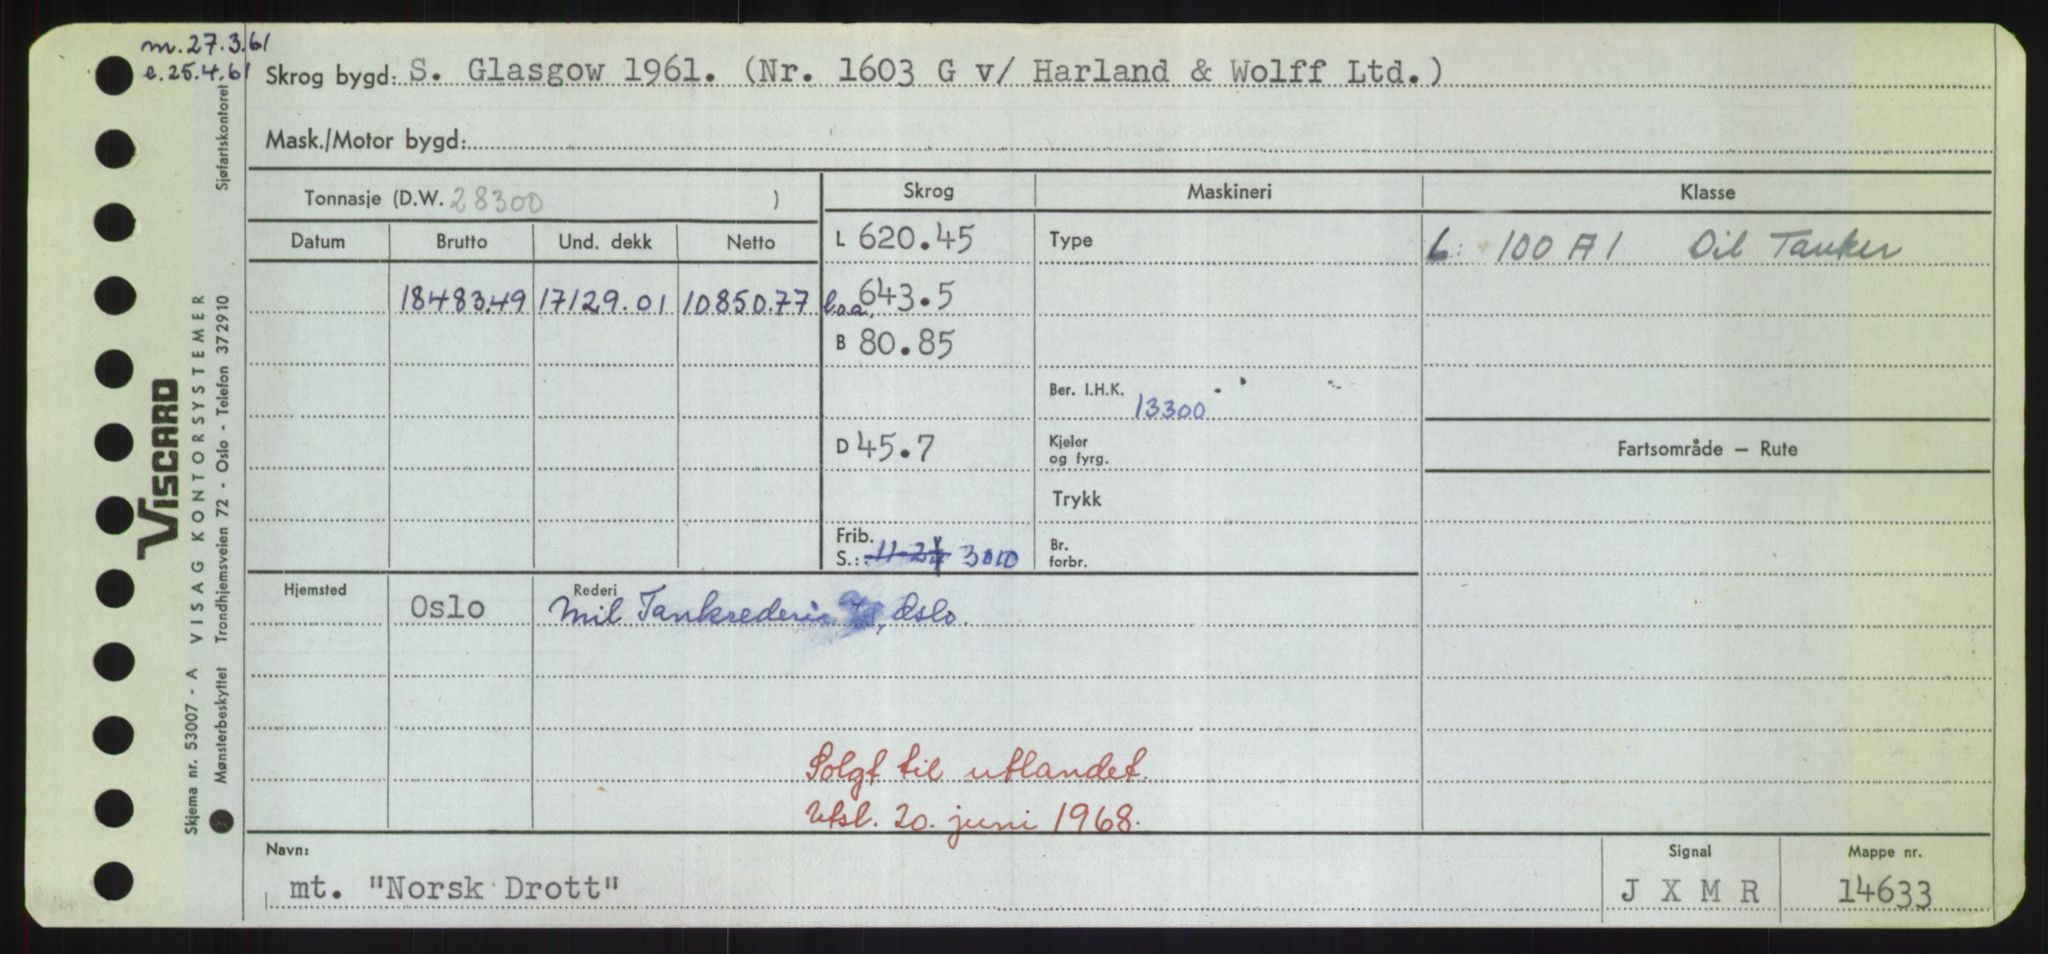 m. 27.3.61
e. 25.4.61
Skrog bygd: S. Glasgow 1961. (Nr. 1603 G v/ Harland & Wolff Ltd.)
Mask./Motor bygd:
Tonnasje (D.W. 28300 )
Skrog Maskineri Klasse
Datum Brutto Und. dekk Netto
L 620.45 Type L: 100 A 1 Oil Tanker
18483.49 17129.01 10850.77 l.o.a. 643.5
B 80.85
Ber. I.H.K. 13300
D 45.7 Kjeler og fyrg. Fartsområde — Rute
Trykk
Frib. S.: 11-2 3010 Br. forbr.
Hjemsted Rederi
Oslo Mil Tankrederi, Oslo.
Solgt til utlandet.
Utsl. 20. juni 1968.
Navn: Signal Mappe nr.
mt. "Norsk Drott" J X M R 14633
VISCARD
Skjema nr. 53007 - A VISAG KONTORSYSTEMER
Mønsterbeskyttet Trondhjemsveien 72 - Oslo - Telefon 372910 Sjøfartskontoret